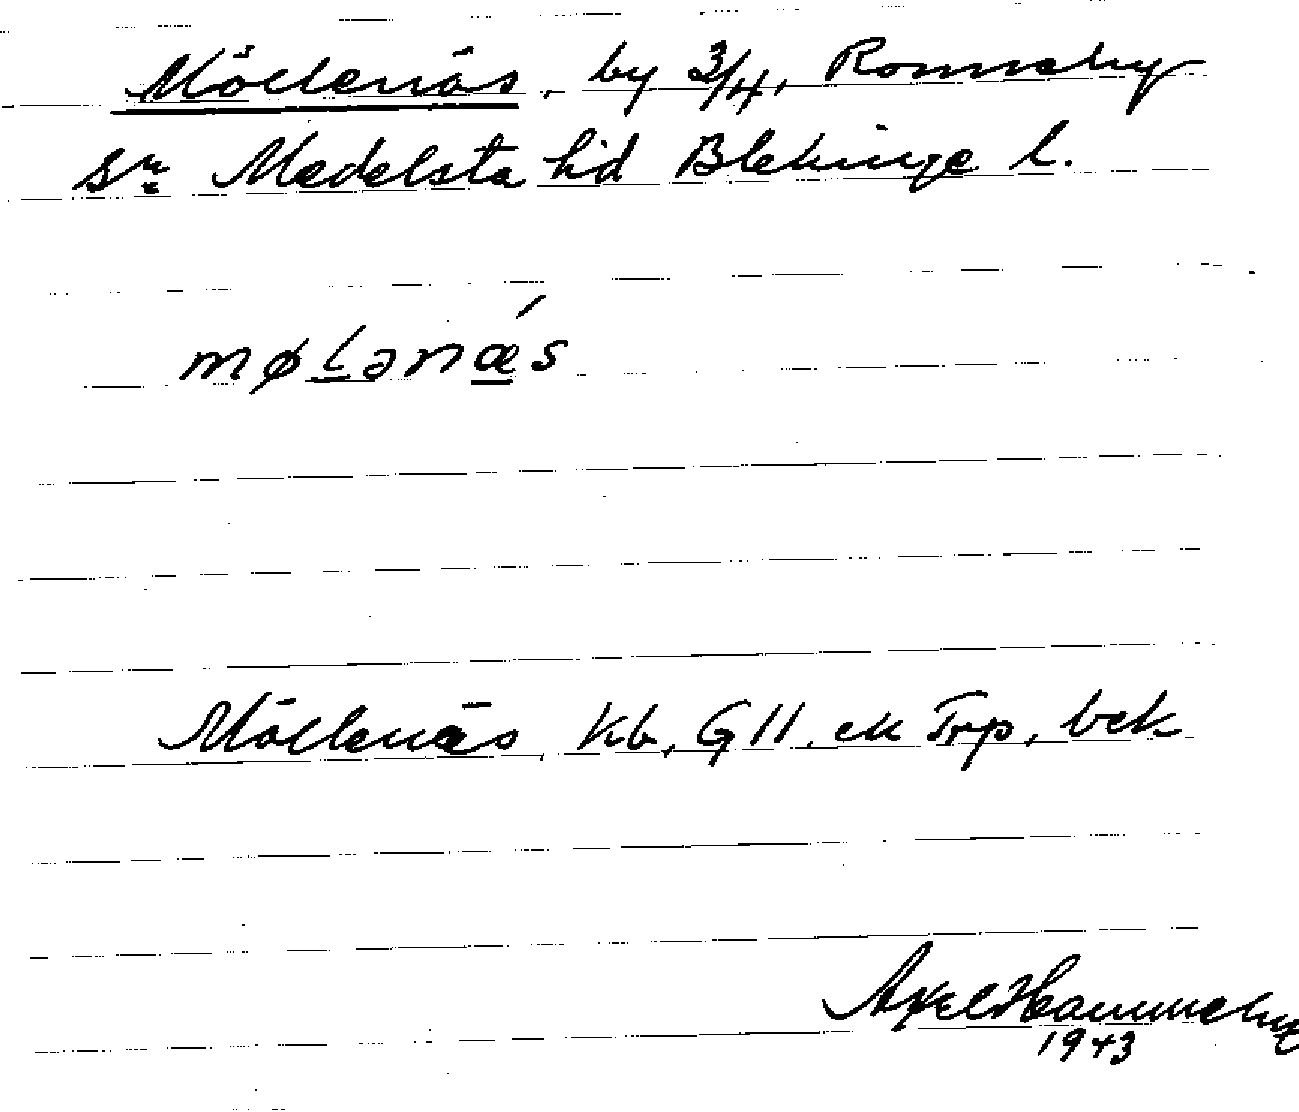 Möllenäs, by 3/4, Ronneby
sn Medelsta hd Blekinge l.
møLənǽs
Möllenäs, Kb, GII, ek Trp, bek
Axel Hammneby
1943